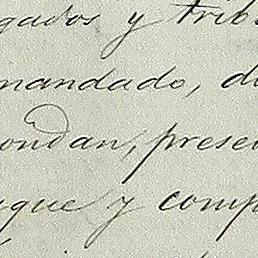 gados y trib
mandado, d
ondan, prese
que y comp